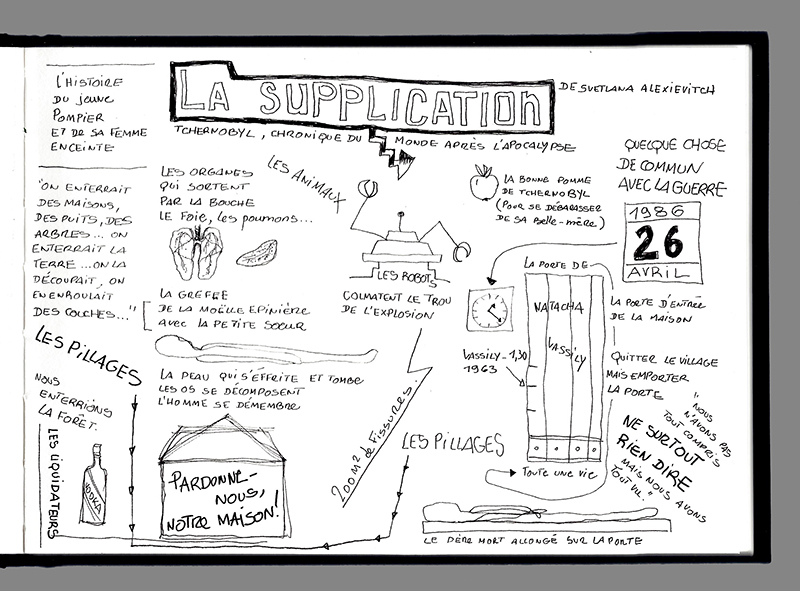 L'HISTOIRE
DU JEUNE
POMPIER
ET DE SA FEMME
ENCEINTE
LA SUPPLICATION
DE SVETLANA ALEXIEVITCH
TCHERNOBYL, CHRONIQUE DU MONDE APRÈS L'APOCALYPSE
"ON ENTERRAIT
DES MAISONS,
DES PUITS, DES
ARBRES... ON
ENTERRAIT LA
TERRE... ON LA
DÉCOUPAIT, ON
EN ENROULAIT
DES COUCHES..."
LES ORGANES
QUI SORTENT
PAR LA BOUCHE
LE FOIE, LES POUMONS...
LES ANIMAUX
LA GREFFE
DE LA MOËLLE EPINIÈRE
AVEC LA PETITE SOEUR
LA PEAU QUI S'EFFRITE ET TOMBE
LES OS SE DÉCOMPOSENT
L'HOMME SE DÉMEMBRE
LES ROBOTS
COLMATENT LE TROU
DE L'EXPLOSION
200 M² de FISSURES.
LA BONNE POMME
DE TCHERNOBYL
(POUR SE DÉBARASSER
DE SA BELLE-MÈRE)
QUELQUE CHOSE
DE COMMUN
AVEC LA GUERRE
1986
26
AVRIL
LA PORTE DE
NATACHA
VASSILY
VASSILY - 1,30
1963
LA PORTE D'ENTRÉE
DE LA MAISON
QUITTER LE VILLAGE
MAIS EMPORTER
LA PORTE
TOUTE UNE VIE
"NOUS
N'AVONS PAS
TOUT COMPRIS
MAIS NOUS AVONS
TOUT VU."
NE SURTOUT
RIEN DIRE
LES PILLAGES
NOUS
ENTERRIONS
LA FORÊT.
LES LIQUIDATEURS
VODKA
PARDONNE-
NOUS,
NOTRE MAISON!
LES PILLAGES
LE PÈRE MORT ALLONGÉ SUR LA PORTE